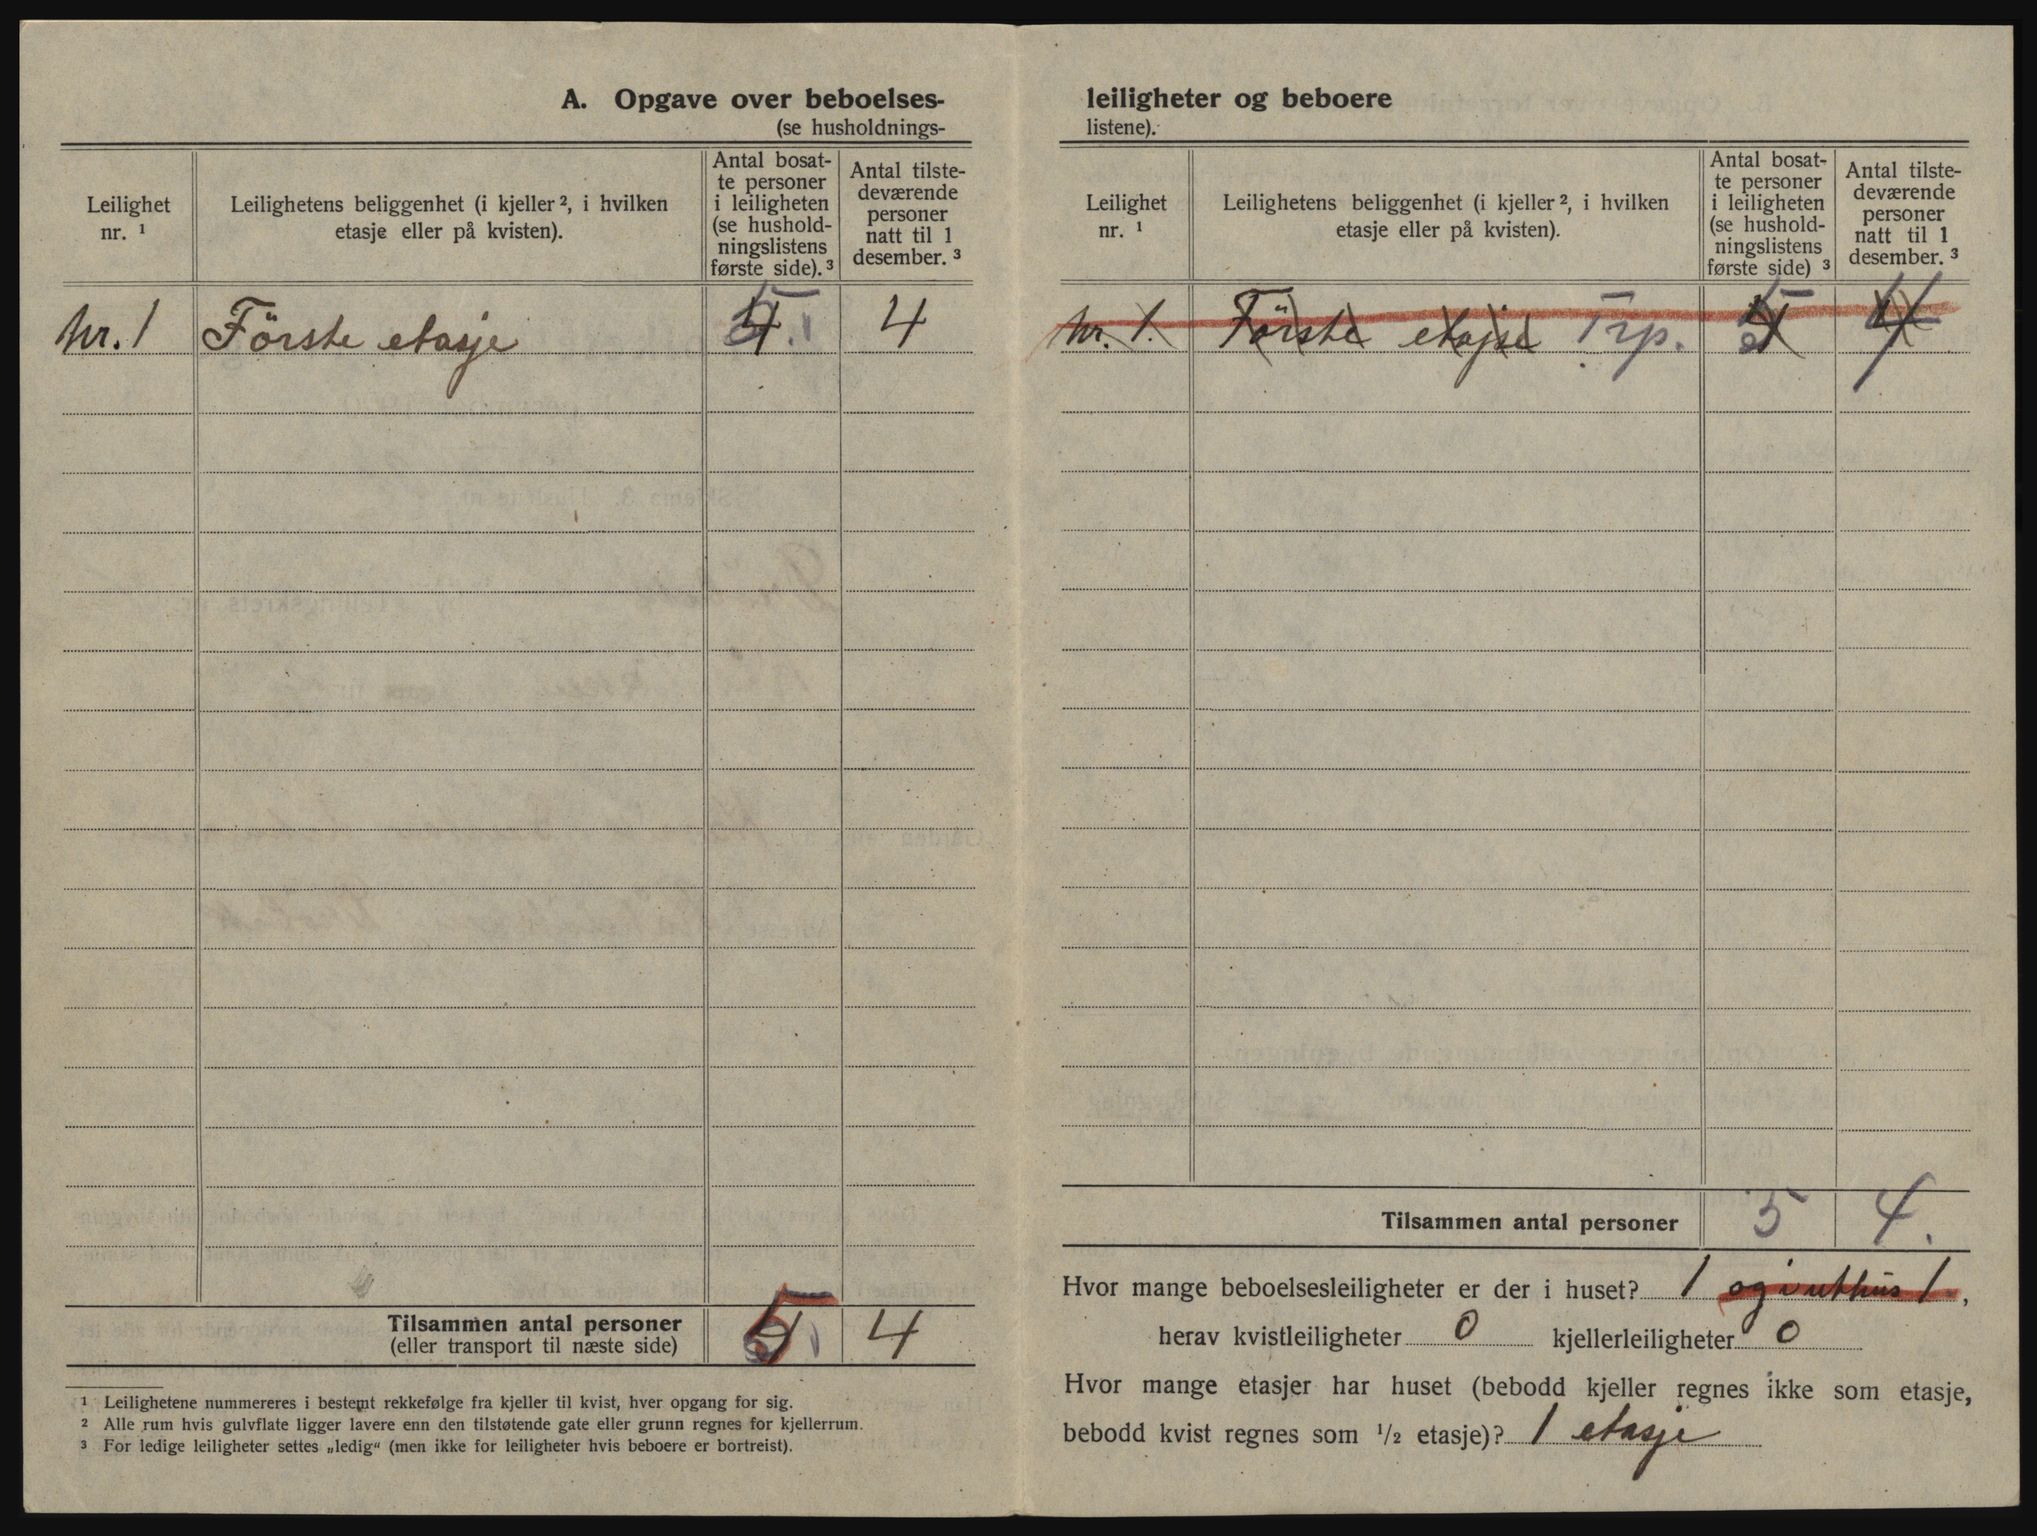 A. Opgave over beboelses-
(se husholdnings-
Leilighet
nr. ¹
Leilighetens beliggenhet (i kjeller ², i hvilken
etasje eller på kvisten).
Antal bosat-
te personer
i leiligheten
(se hushold-
ningslistens
første side). ³
Antal tilste-
deværende
personer
natt til 1
desember. ³
Nr. 1 Förste etasje 5 4
Tilsammen antal personer 5 4
(eller transport til næste side)
¹ Leilighetene nummereres i bestemt rekkefølge fra kjeller til kvist, hver opgang for sig.
² Alle rum hvis gulvflate ligger lavere enn den tilstøtende gate eller grunn regnes for kjellerrum.
³ For ledige leiligheter settes „ledig“ (men ikke for leiligheter hvis beboere er bortreist).
leiligheter og beboere
listene).
Leilighet
nr. ¹
Leilighetens beliggenhet (i kjeller ², i hvilken
etasje eller på kvisten).
Antal bosat-
te personer
i leiligheten
(se hushold-
ningslistens
første side) ³
Antal tilste-
deværende
personer
natt til 1
desember. ³
Nr. 1. Förste etajse Trp. 5 4
Tilsammen antal personer 5 4.
Hvor mange beboelsesleiligheter er der i huset? 1 og i uthus 1,
herav kvistleiligheter 0 kjellerleiligheter 0
Hvor mange etasjer har huset (bebodd kjeller regnes ikke som etasje,
bebodd kvist regnes som ½ etasje)? 1 etasje